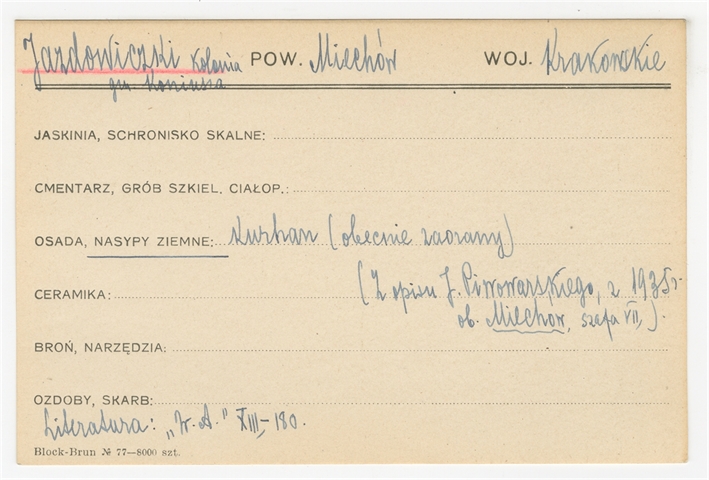 Jazdowiczki Kolonia POW. Miechów WOJ. Krakowskie
gm. Koniusza
JASKINIA, SCHRONISKO SKALNE:
CMENTARZ, GRÓB SZKIEL. CIAŁOP.:
OSADA, NASYPY ZIEMNE: Kurhan (obecnie zaorany)
CERAMIKA: (Z opisu J. Piwowarskiego, z 1935 r.
ob. Miechow, szafa VII,).
BROŃ, NARZĘDZIA:
OZDOBY, SKARB:
Literatura: „W. A." XIII–180.
Block-Brun № 77—8000 szt.